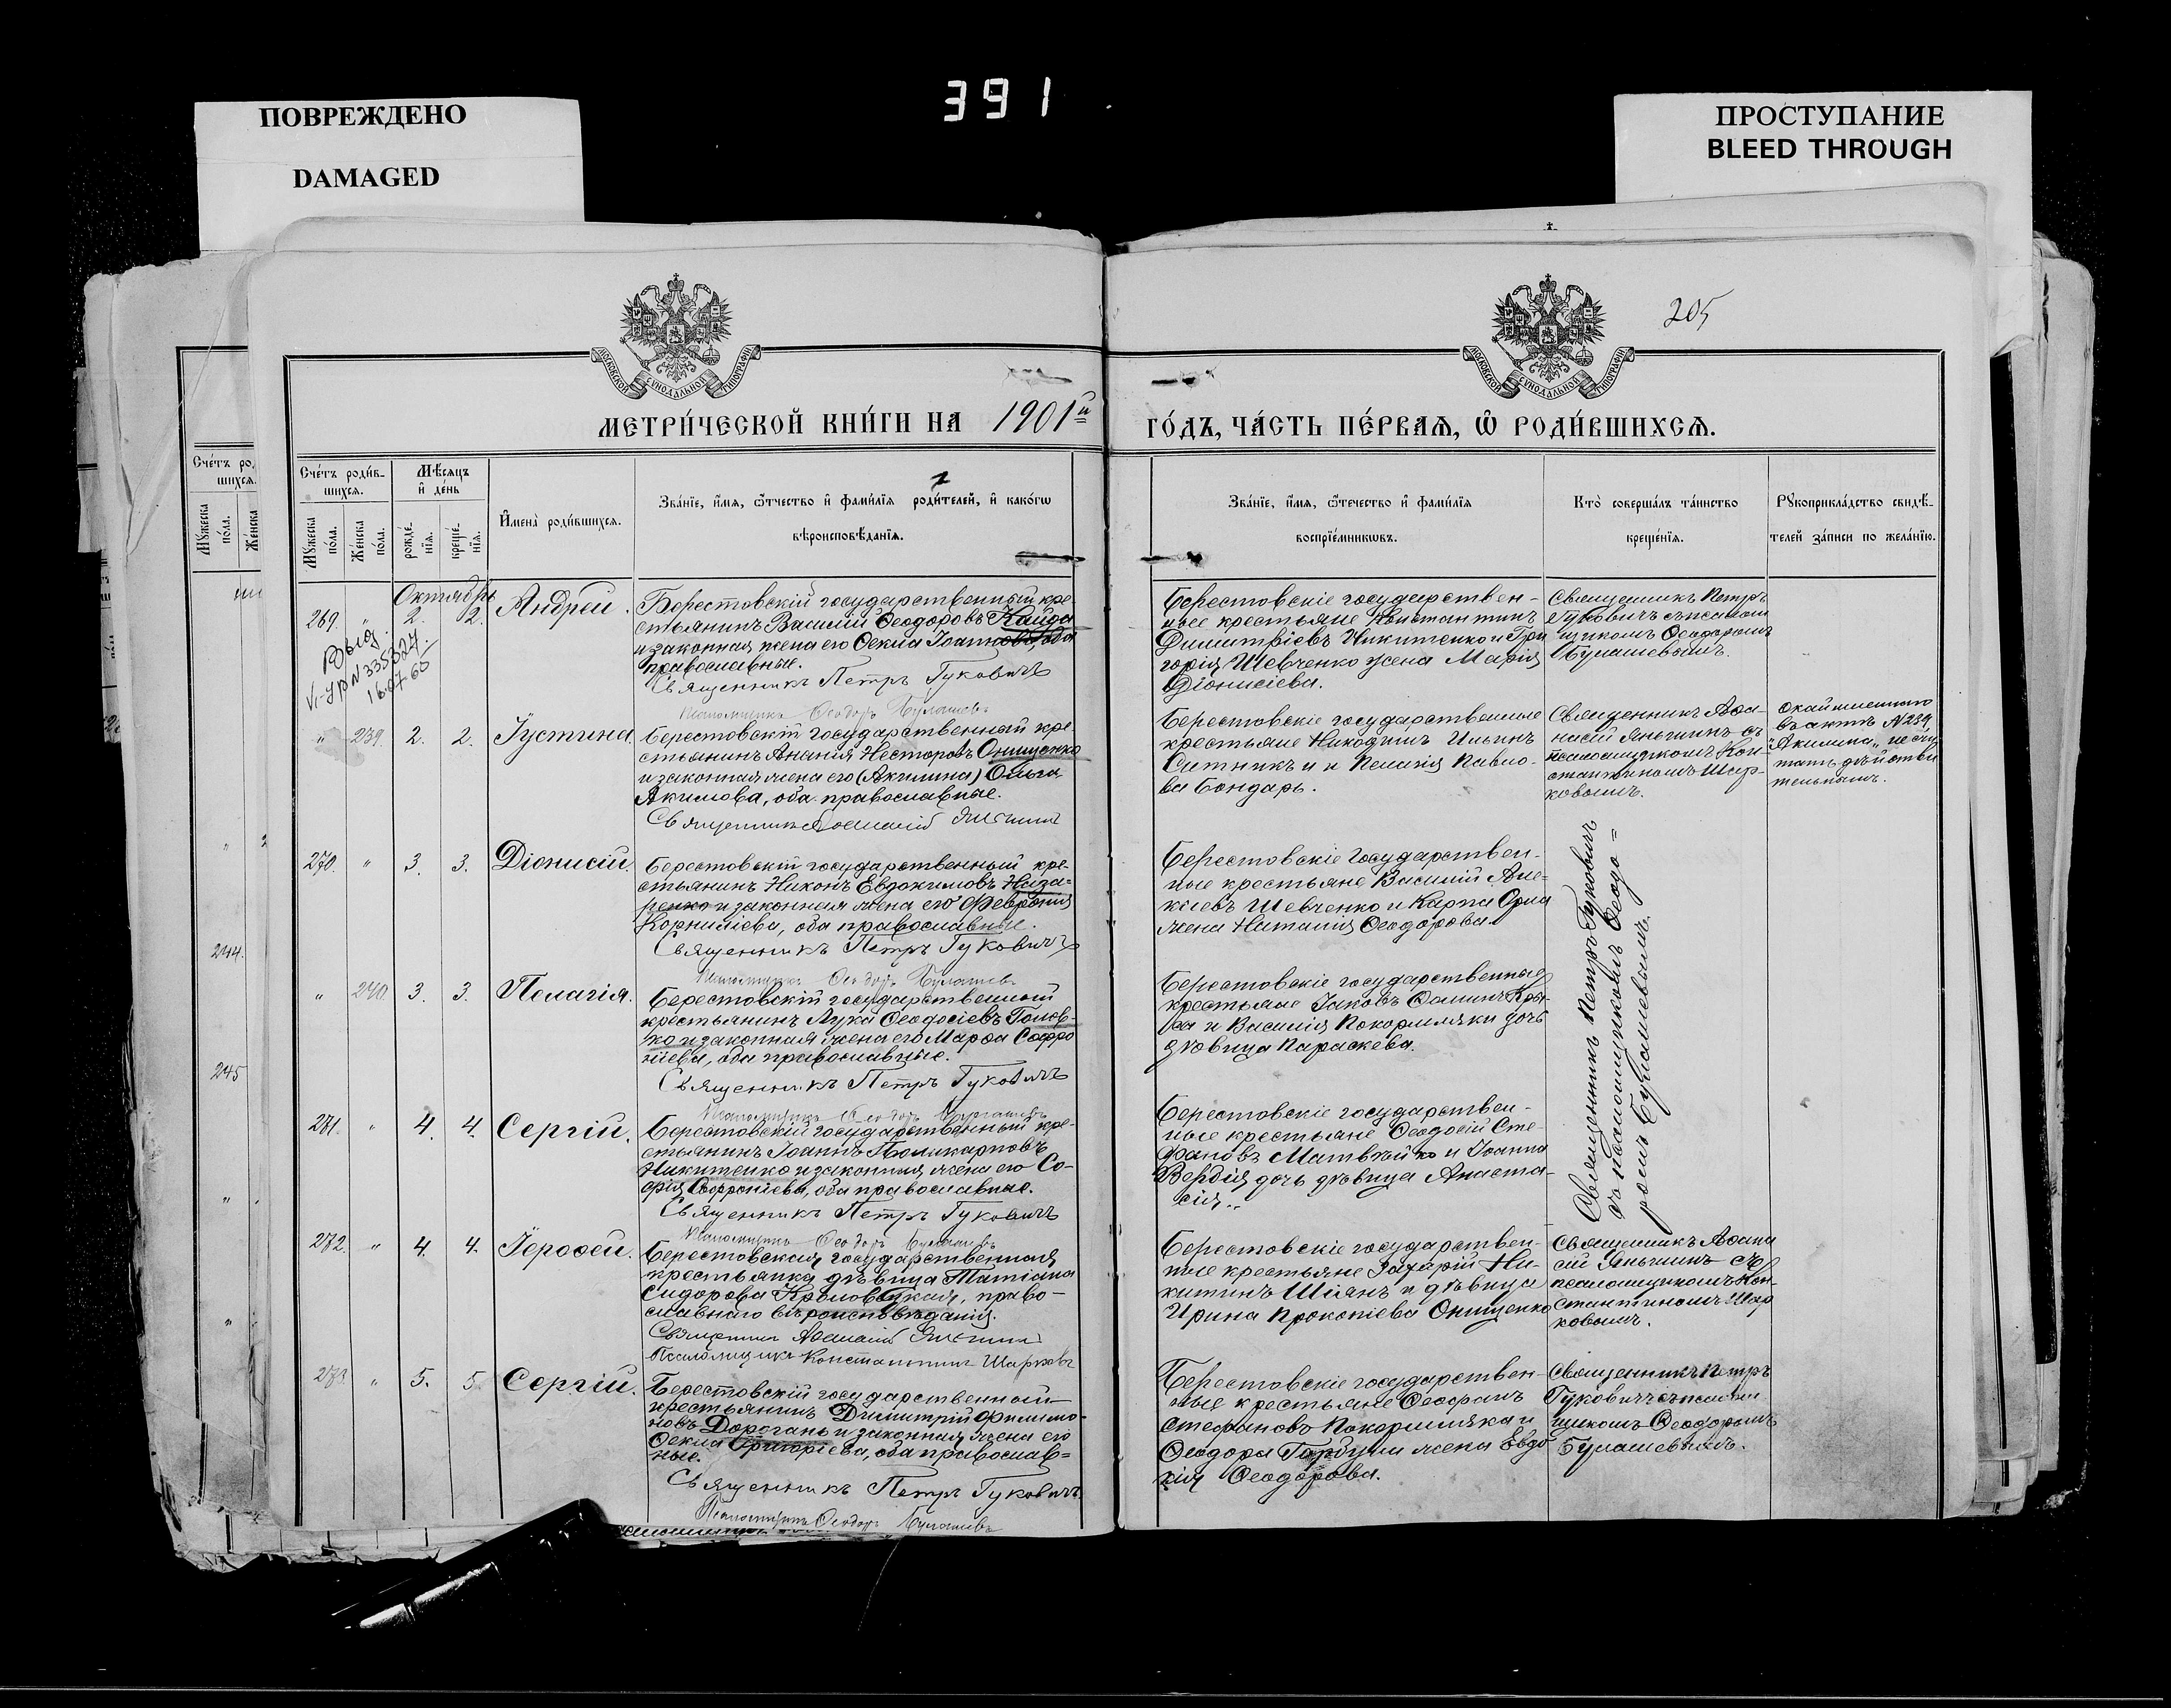 391
ПОВРЕЖДЕНО
DAMAGED
ПРОСТУПАНИЕ
BLEED THROUGH
205
МОСКОВСКОЙ СѴНОДАЛЬНОЙ ТИПОГРАФІИ
МОСКОВСКОЙ СѴНОДАЛЬНОЙ ТИПОГРАФІИ
МЕТРИ́ЧЕСКОЙ КНИ́ГИ НА 1901й
ГО́ДЪ, ЧА́СТЬ ПЕ́РВАѦ, Ѡ РОДИ́ВШИХСѦ.
Счéтъ роди́в-
шихсѧ.
Мꙋжеска по́ла.
Же́нска по́ла.
Мѣ́сѧцъ и де́нь
рожде́-
нїѧ.
креще́-
нїѧ.
И҆мена̀ роди́вшихсѧ.
Зва́нїе, и҆́мѧ, ѻ҆́тчество и҆ фами́лїѧ роди́телей, и҆ како́гѡ
вѣроисповѣ́данїѧ.
Зва́нїе, и҆́мѧ, ѻ҆те́чество и҆ фами́лїѧ
воспрїе́мникѡвъ.
Кто̀ соверша́лъ та́инство
креще́нїѧ.
Рꙋкоприкла́дство свидѣ́-
телей за́писи по жела́нїю.
Октябрь
269. " 2. 2. Андрей.
Выд.
V-УР N 335324
16.07.60
Берестовскій государственный кре-
стьянинъ Василій Ѳеодоровъ Кайда
и законная жена его Ѳекла Іоаннова, оба
православные.
Священникъ Петръ Гуковичъ
Псаломщикъ Ѳеодоръ Булашевъ
Берестовскіе государствен-
ные крестьяне Константинъ
Димитріевъ Никитенко и Гри
горія Шевченко жена Марія
Діонисіева.
Священникъ Петръ
Гуковичъ съ псалом
щикомъ Ѳеодоромъ
Булашевымъ.
" 239. 2. 2. Іустина.
Берестовскій государственный кре
стьянинъ Ананія Несторовъ Онищенко
и законная жена его (Акилина) Ольга
Акимова, оба православные.
Священникъ Аѳанасій Яньшинъ
Берестовскіе государственные
крестьяне Никодимъ Ильинъ
Ситникъ и и Пелагія Павло-
ва Бондарь.
Священникъ Аѳа-
насій Яньшинъ съ
псаломщикомъ Кон-
стантиномъ Шар-
ковымъ.
Окаймленнаго
въ актѣ №239
"Акилина" не счи
тать дѣйстви
тельнымъ.
270. " 3. 3. Діонисій.
Берестовскій государственный кре-
стьянинъ Никонъ Евдокимовъ Наза=
ренко и законная жена его Февронія
Корниліева, оба православные.
Священникъ Петръ Гуковичъ
Псаломщикъ Ѳеодоръ Булашевъ
Берестовскіе государствен-
ные крестьяне Василій Але-
ксіевъ Шевченко и Карпа Орла
жена Наталія Ѳеодорова.
Священникъ Петръ Гуковичъ
съ псаломщикомъ Ѳеодо=
ромъ Булашевымъ.
" 240. 3. 3. Пелагія.
Берестовскій государственный
крестьянинъ Лука Ѳеодосіевъ Голов-
ко и законная жена его Марѳа Софро
ніева, оба православные.
Священникъ Петръ Гуковичъ
Псаломщикъ Ѳеодоръ Булашевъ
Берестовскіе государственные
крестьяне Іаковъ Ѳоминъ
и Василія Покормляки дочь
дѣвица Параскева.
271. " 4. 4. Сергій.
Берестовскій государственный кре-
стьянинъ Іоаннъ Поликарповъ
Никитенко и законная жена его Со-
фія Софроніева, оба православные.
Священникъ Петръ Гуковичъ
Псаломщикъ Ѳеодоръ Булашевъ
Берестовскіе государствен-
ные крестьяне Ѳеодосій Сте-
фановъ Матвѣйко и Іоанна
Вербія дочь дѣвица Анаста-
сія.
272. " 4. 4. Іероѳей.
Берестовская государственная
крестьянка дѣвица Татіана
Сидорова, право-
славнаго вѣроисповѣданія.
Священникъ Аѳанасій Яньшинъ
Псаломщикъ Константинъ Шарковъ
Берестовскіе государствен-
ные крестьяне Захарій Ни-
китинъ Шіянъ и дѣвица
Ирина Прокопіева Онищенко
Священникъ Аѳана
сій Яньшинъ съ
псаломщикомъ Кон-
стантиномъ Шар
ковымъ.
273. " 5. 5. Сергій.
Берестовскій государственный
крестьянинъ Димитрій Филимо-
новъ Дорогань и законная жена его
Ѳекла Григоріева, оба православ=
ные.
Священникъ Петръ Гуковичъ
Псаломщикъ Ѳеодоръ Булашевъ
Берестовскіе государствен-
ные крестьяне Ѳеофанъ
Стефановъ Покормляка и
Ѳеодора Горбули жена Евдо
кія Ѳеодорова.
Священникъ Петръ
Гуковичъ съ псалом
щикомъ Ѳеодоромъ
Булашевымъ.
Счéтъ ро
шихсѧ.
Мꙋжеска по́ла.
Же́нска
244.
245